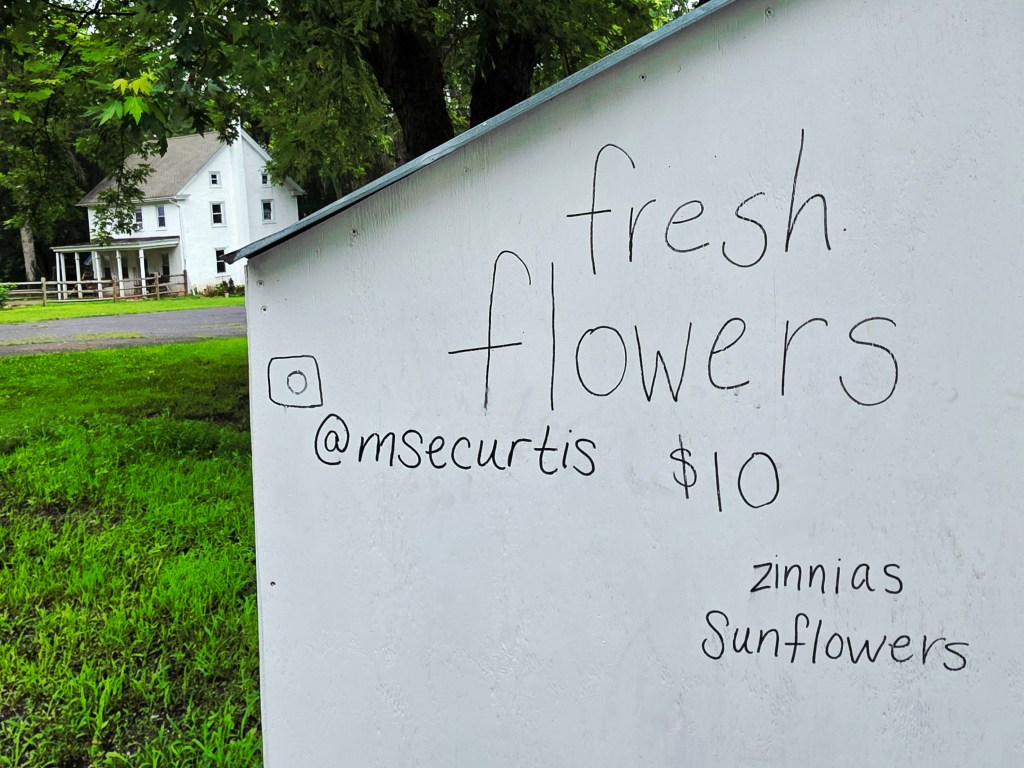 fresh
flowers
@msecurtis
$10
zinnias
Sunflowers